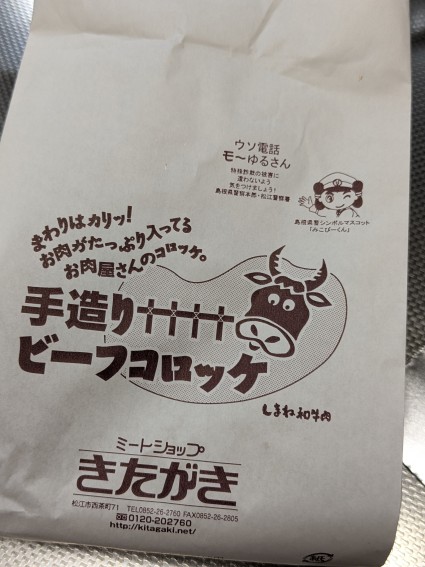 ウソ電話
モ〜ゆるさん
特殊詐欺の被害に
遭わないよう
気をつけましょう!
島根県警察本部・松江警察署
島根県警シンボルマスコット
「みこぴーくん」
まわりはカリッ!
お肉がたっぷり入ってる
お肉屋さんのコロッケ。
手造り
ビーフコロッケ
しまね和牛肉
ミートショップ
きたがき
松江市西茶町71 TEL0852-26-2760 FAX0852-26-2605
0120-202760
http://kitagaki.net/